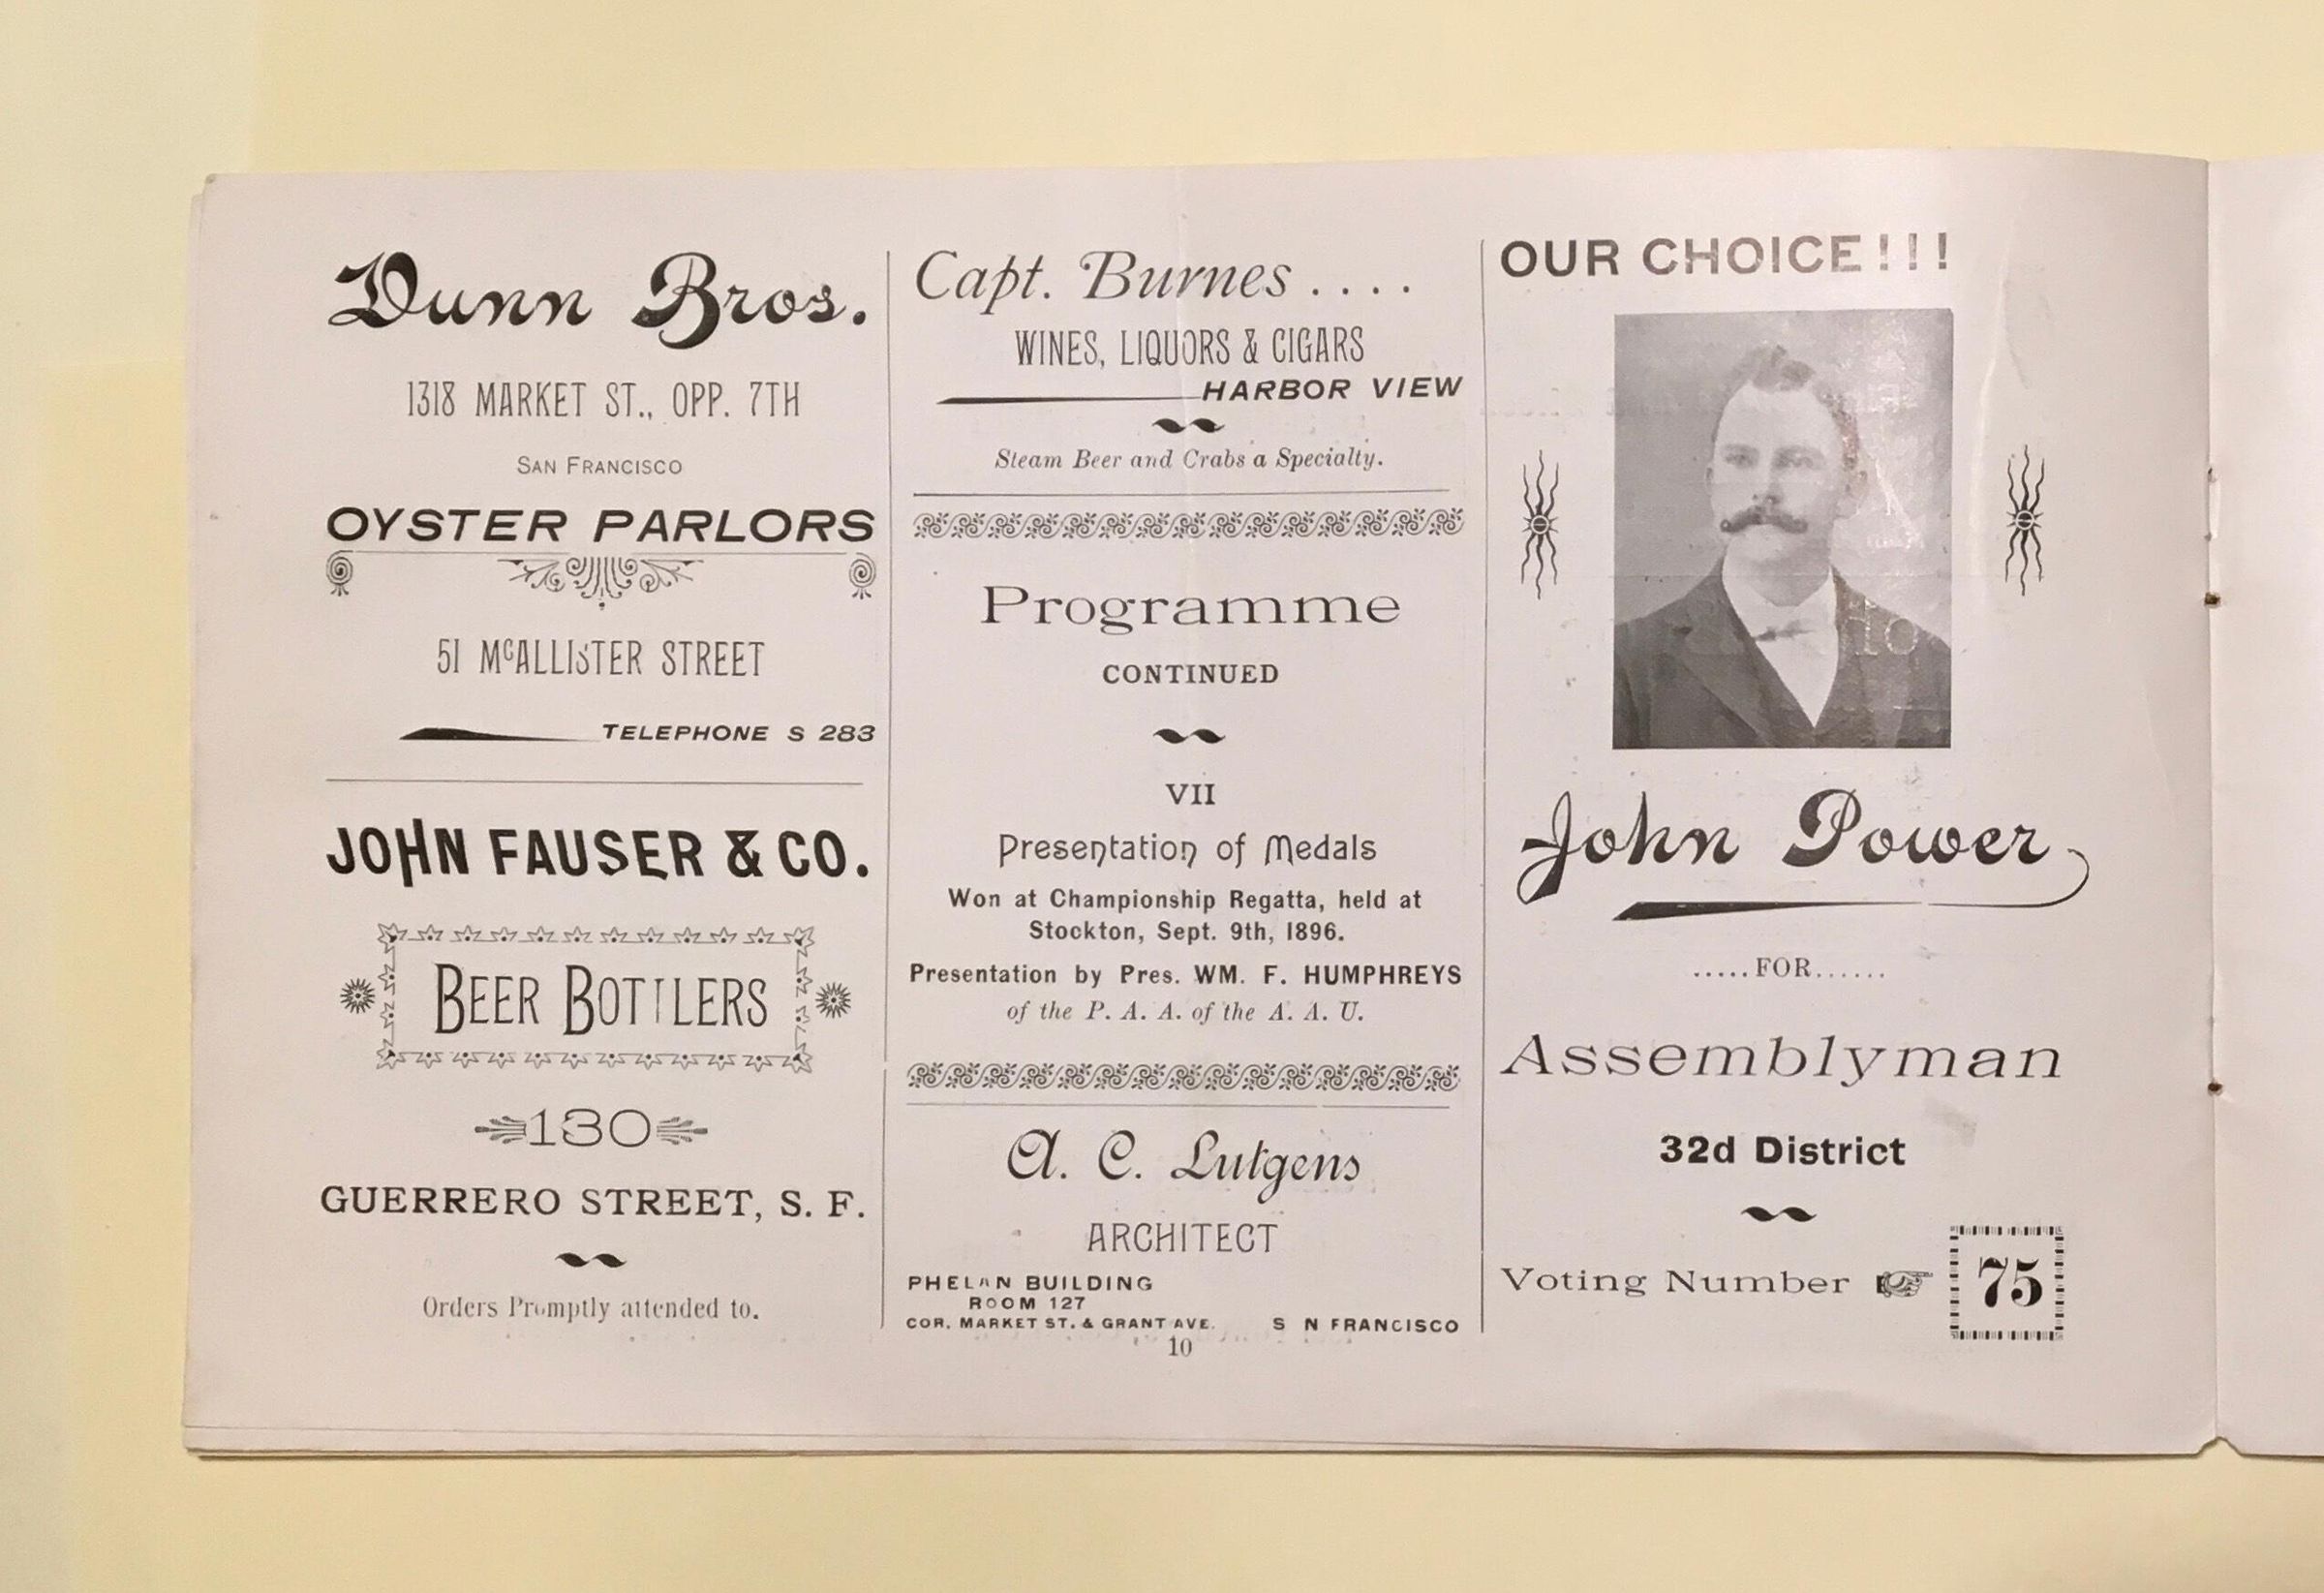 Dunn Bros.
1318 MARKET ST., OPP. 7TH
SAN FRANCISCO
OYSTER PARLORS
51 McALLISTER STREET
TELEPHONE S 283
JOHN FAUSER & CO.
BEER BOTTLERS
130
GUERRERO STREET, S. F.
Orders Promptly attended to.
Capt. Burnes ....
WINES, LIQUORS & CIGARS
HARBOR VIEW
Steam Beer and Crabs a Specialty.
Programme
CONTINUED
VII
Presentation of Medals
Won at Championship Regatta, held at
Stockton, Sept. 9th, 1896.
Presentation by Pres. WM. F. HUMPHREYS
of the P. A. A. of the A. A. U.
A. C. Lutgens
ARCHITECT
PHELAN BUILDING
ROOM 127
COR. MARKET ST. & GRANT AVE. S N FRANCISCO
10
OUR CHOICE!!!
John Power
.....FOR......
Assemblyman
32d District
Voting Number 75